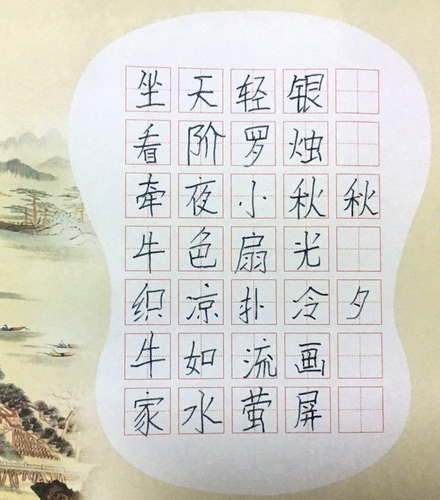 秋夕
银烛秋光冷画屏
轻罗小扇扑流萤
天阶夜色凉如水
坐看牵牛织牛家